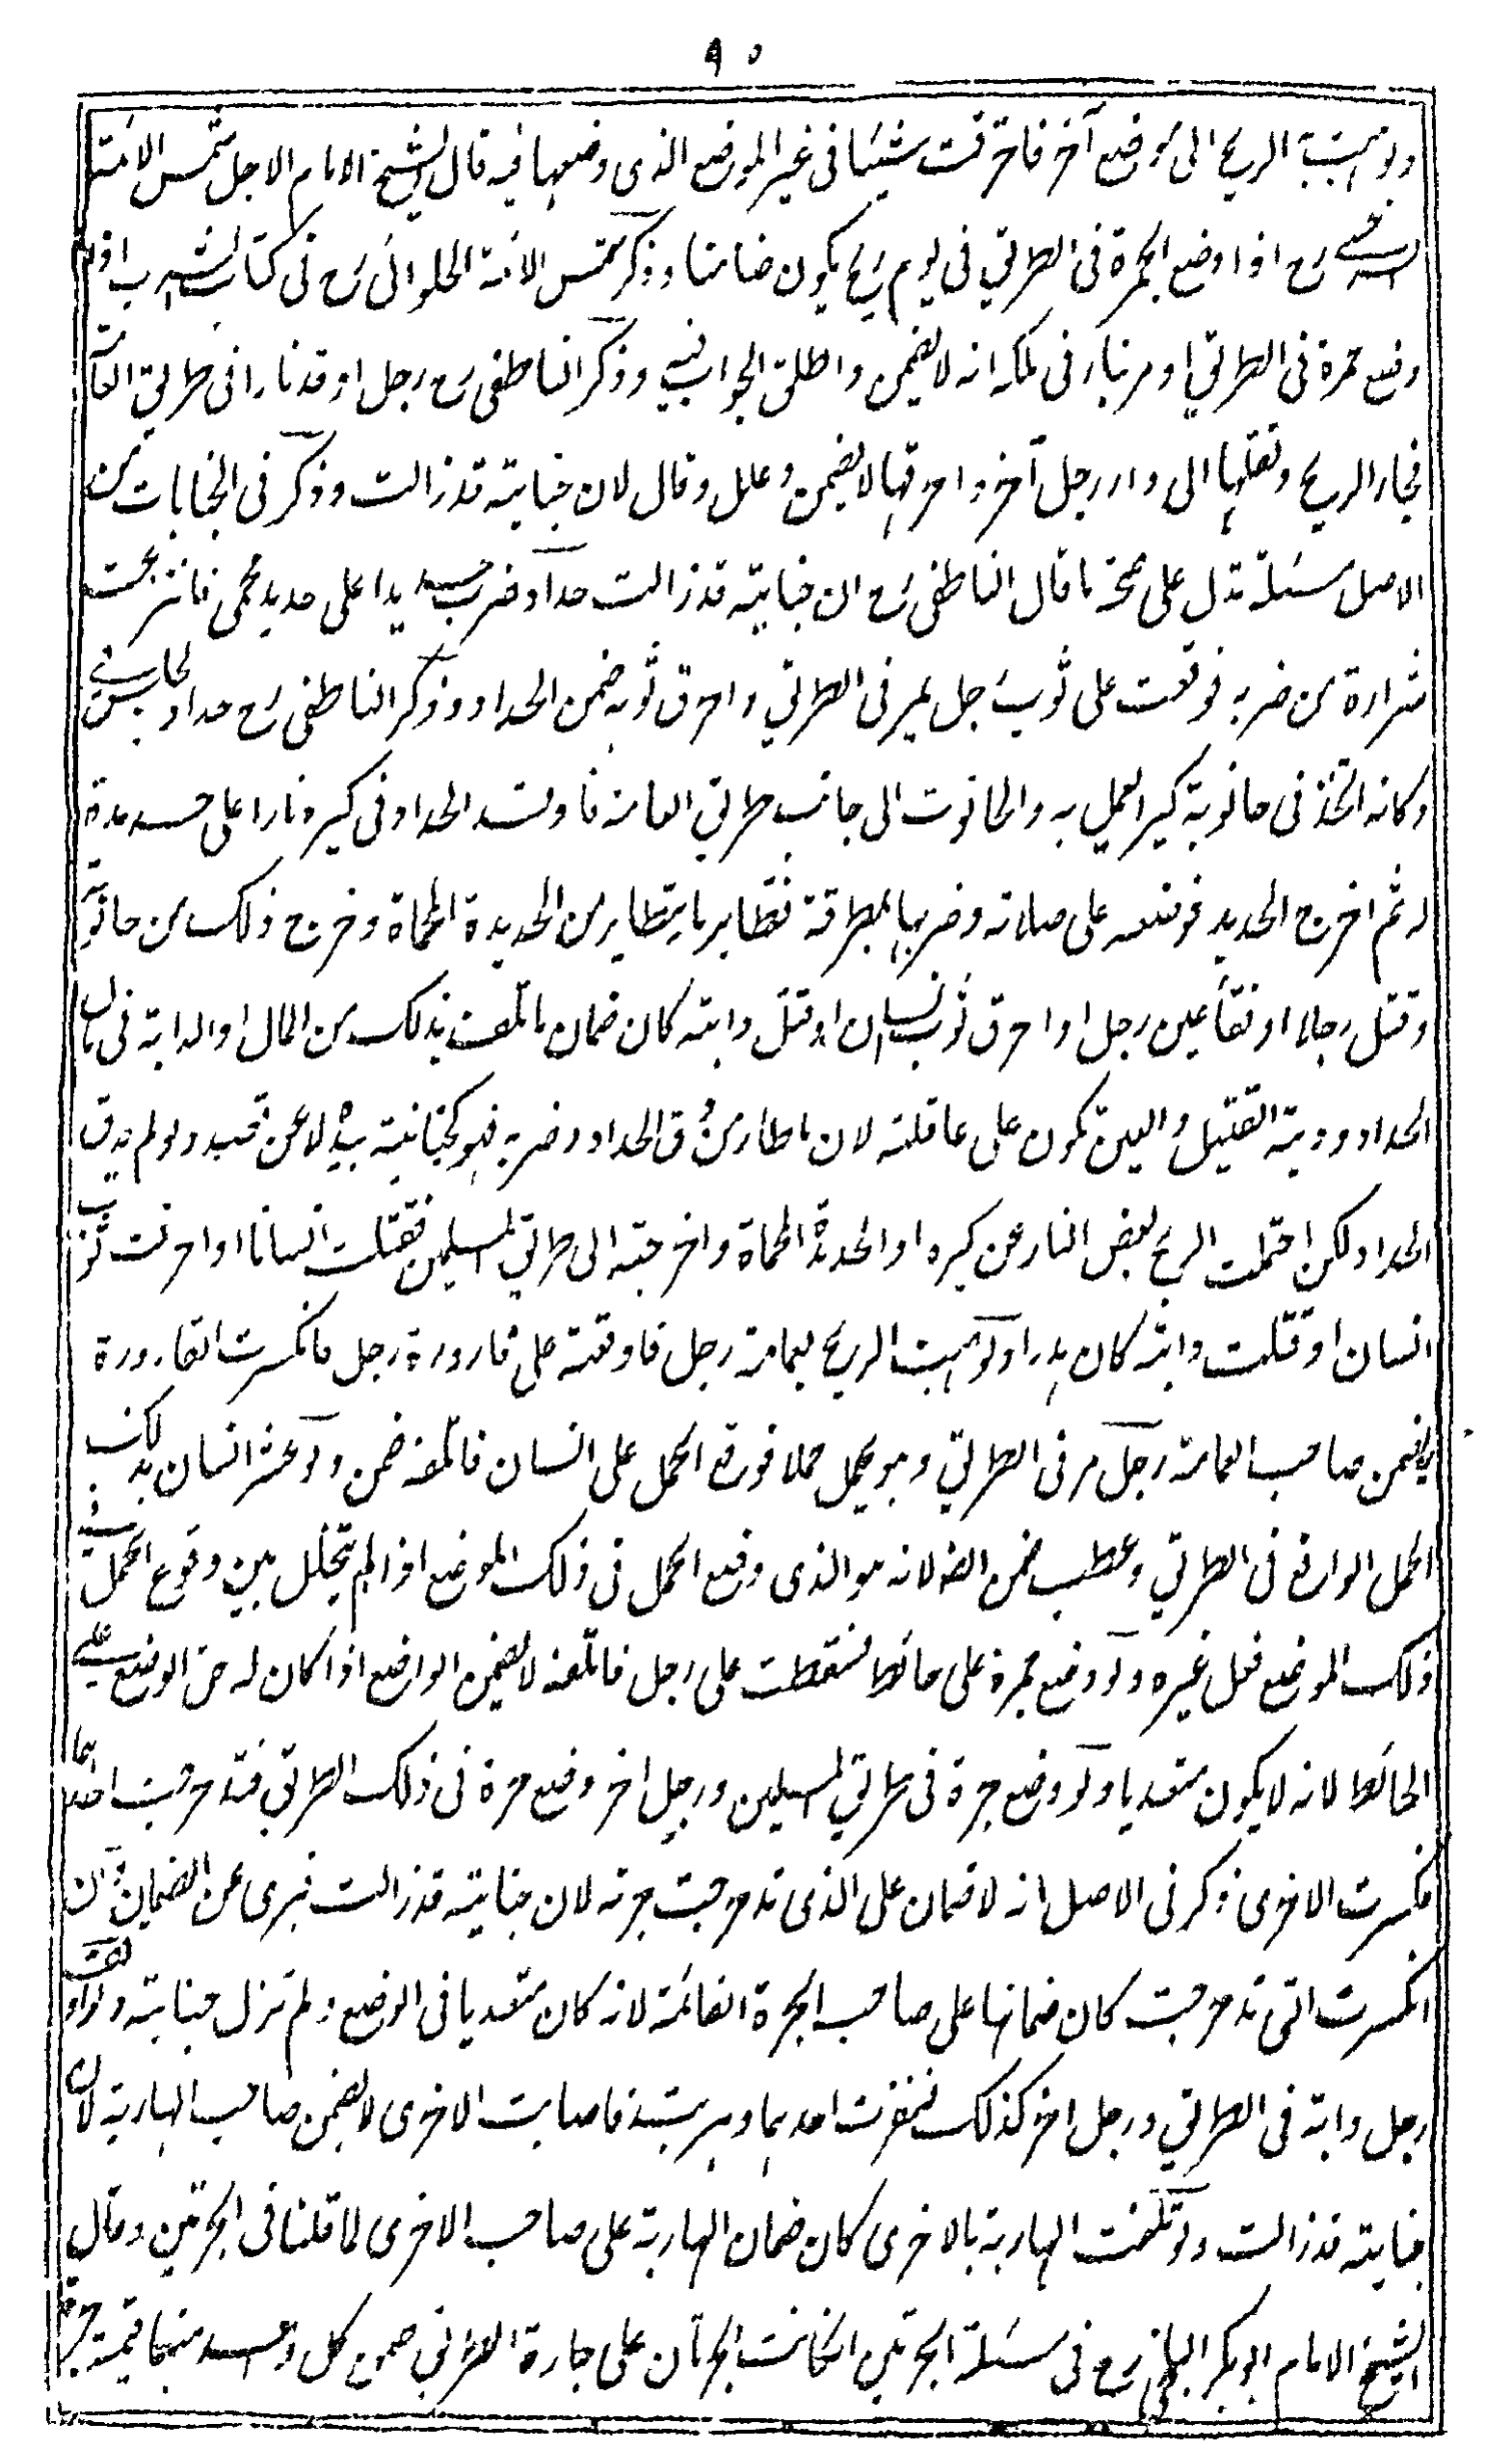 ٩٠
ولو هبت الريح الى موضع آخر فاحرقت شيئا فى غير الموضع الذى وضعها فيه قال الشيخ الامام الاجل شمس الائمة
السرخسى رح اذا وضع الجمرة فى الطريق فى يوم ريح يكون ضامنا وذكر شمس الائمة الحلوانى رح فى كتاب الشرب اذا
وضع جمرة فى الطريق او مر بنار فى ملكه انه لا يضمن واطلق الجواب فيه وذكر الناطفى رح رجل اوقد نارا فى طريق العامة
فجاء الريح ونقلها الى دار رجل آخر واحرقها لا يضمن وعلل وقال لان جنايته قد زالت وذكر فى الجنايات من
الاصل مسئلة تدل على صحة ما قال الناطفى رح ان جنايته قد زالت حداد ضرب حديدا على حديد محمى فانتزعت
شرارة من ضربه فوقعت على ثوب رجل يمر فى الطريق واحرق ثوبه ضمن الحداد وذكر الناطفى رح حداد يجلس فى
دكانه اتخذ فى حانوته كيرا يعمل به والحانوت الى جانب طريق العامة فاوقد الحداد فى كيره نارا على حديدة
له ثم اخرج الحديد فوضعه على صلاته وضربها بمطرقة فتطاير ما يتطاير من الحديدة المحماة وخرج ذلك من حانوته
وقتل رجلا او فقأ عين رجل او احرق ثوب انسان او قتل دابته كان ضمان ما تلف بذلك من المال او الدابة فى مال
الحداد ودية القتيل والعين تكون على عاقلته لان ما طار من دق الحداد وضربه فهو كجنايته بيده لا عن قصد ولو لم يدق
الحداد لكن احتملت الريح بعض النار عن كيره او الحديدة المحماة واخرجته الى طريق المسلمين فقتلت انسانا او احرقت ثوب
انسان او قتلت دابته كان هدرا ولو هبت الريح بعمامة رجل فاوقعته على قارورة رجل فانكسرت القارورة
لا يضمن صاحب العمامة رجل مر فى الطريق وهو يحمل حملا فوقع الحمل على انسان فاتلفه ضمن ولو عثر انسان بذلك
الحمل الواقع فى الطريق وعطب ضمن ايضا لانه هو الذى وضع الحمل فى ذلك الموضع اذا لم يتخلل بين وقوع الحمل فى
ذلك الموضع فعل غيره ولو وضع جمرة على حائط فسقطت على رجل فاتلفه لا يضمن الواضع اذا كان له حق الوضع على
الحائط لانه لا يكون متعديا ولو وضع جرة فى طريق المسلمين ورجل اخر وضع جرة فى ذلك الطريق فتدحرجت احدهما
فكسرت الاخرى ذكر فى الاصل انه لا ضمان على الذى تدحرجت جرته لان جنايته قد زالت فبرى عن الضمان وان
انكسرت التى تدحرجت كان ضمانها على صاحب الجرة القائمة لانه كان متعديا فى الوضع ولم تزل جنايته ولو اوقف
رجل دابة فى الطريق ورجل اخر كذلك فنفرت احدهما وهربت فاصابت الاخرى لا يضمن صاحب الهاربة لان
جنايته قد زالت ولو تلفت الهاربة بالاخرى كان ضمان الهاربة على صاحب الاخرى لما قلنا فى الجرتين وقال
الشيخ الامام ابو بكر البلخى رح فى مسئلة الجرتين ان كانت الجرتان على جادة الطريق ضمن كل واحد منهما قيمة جرة